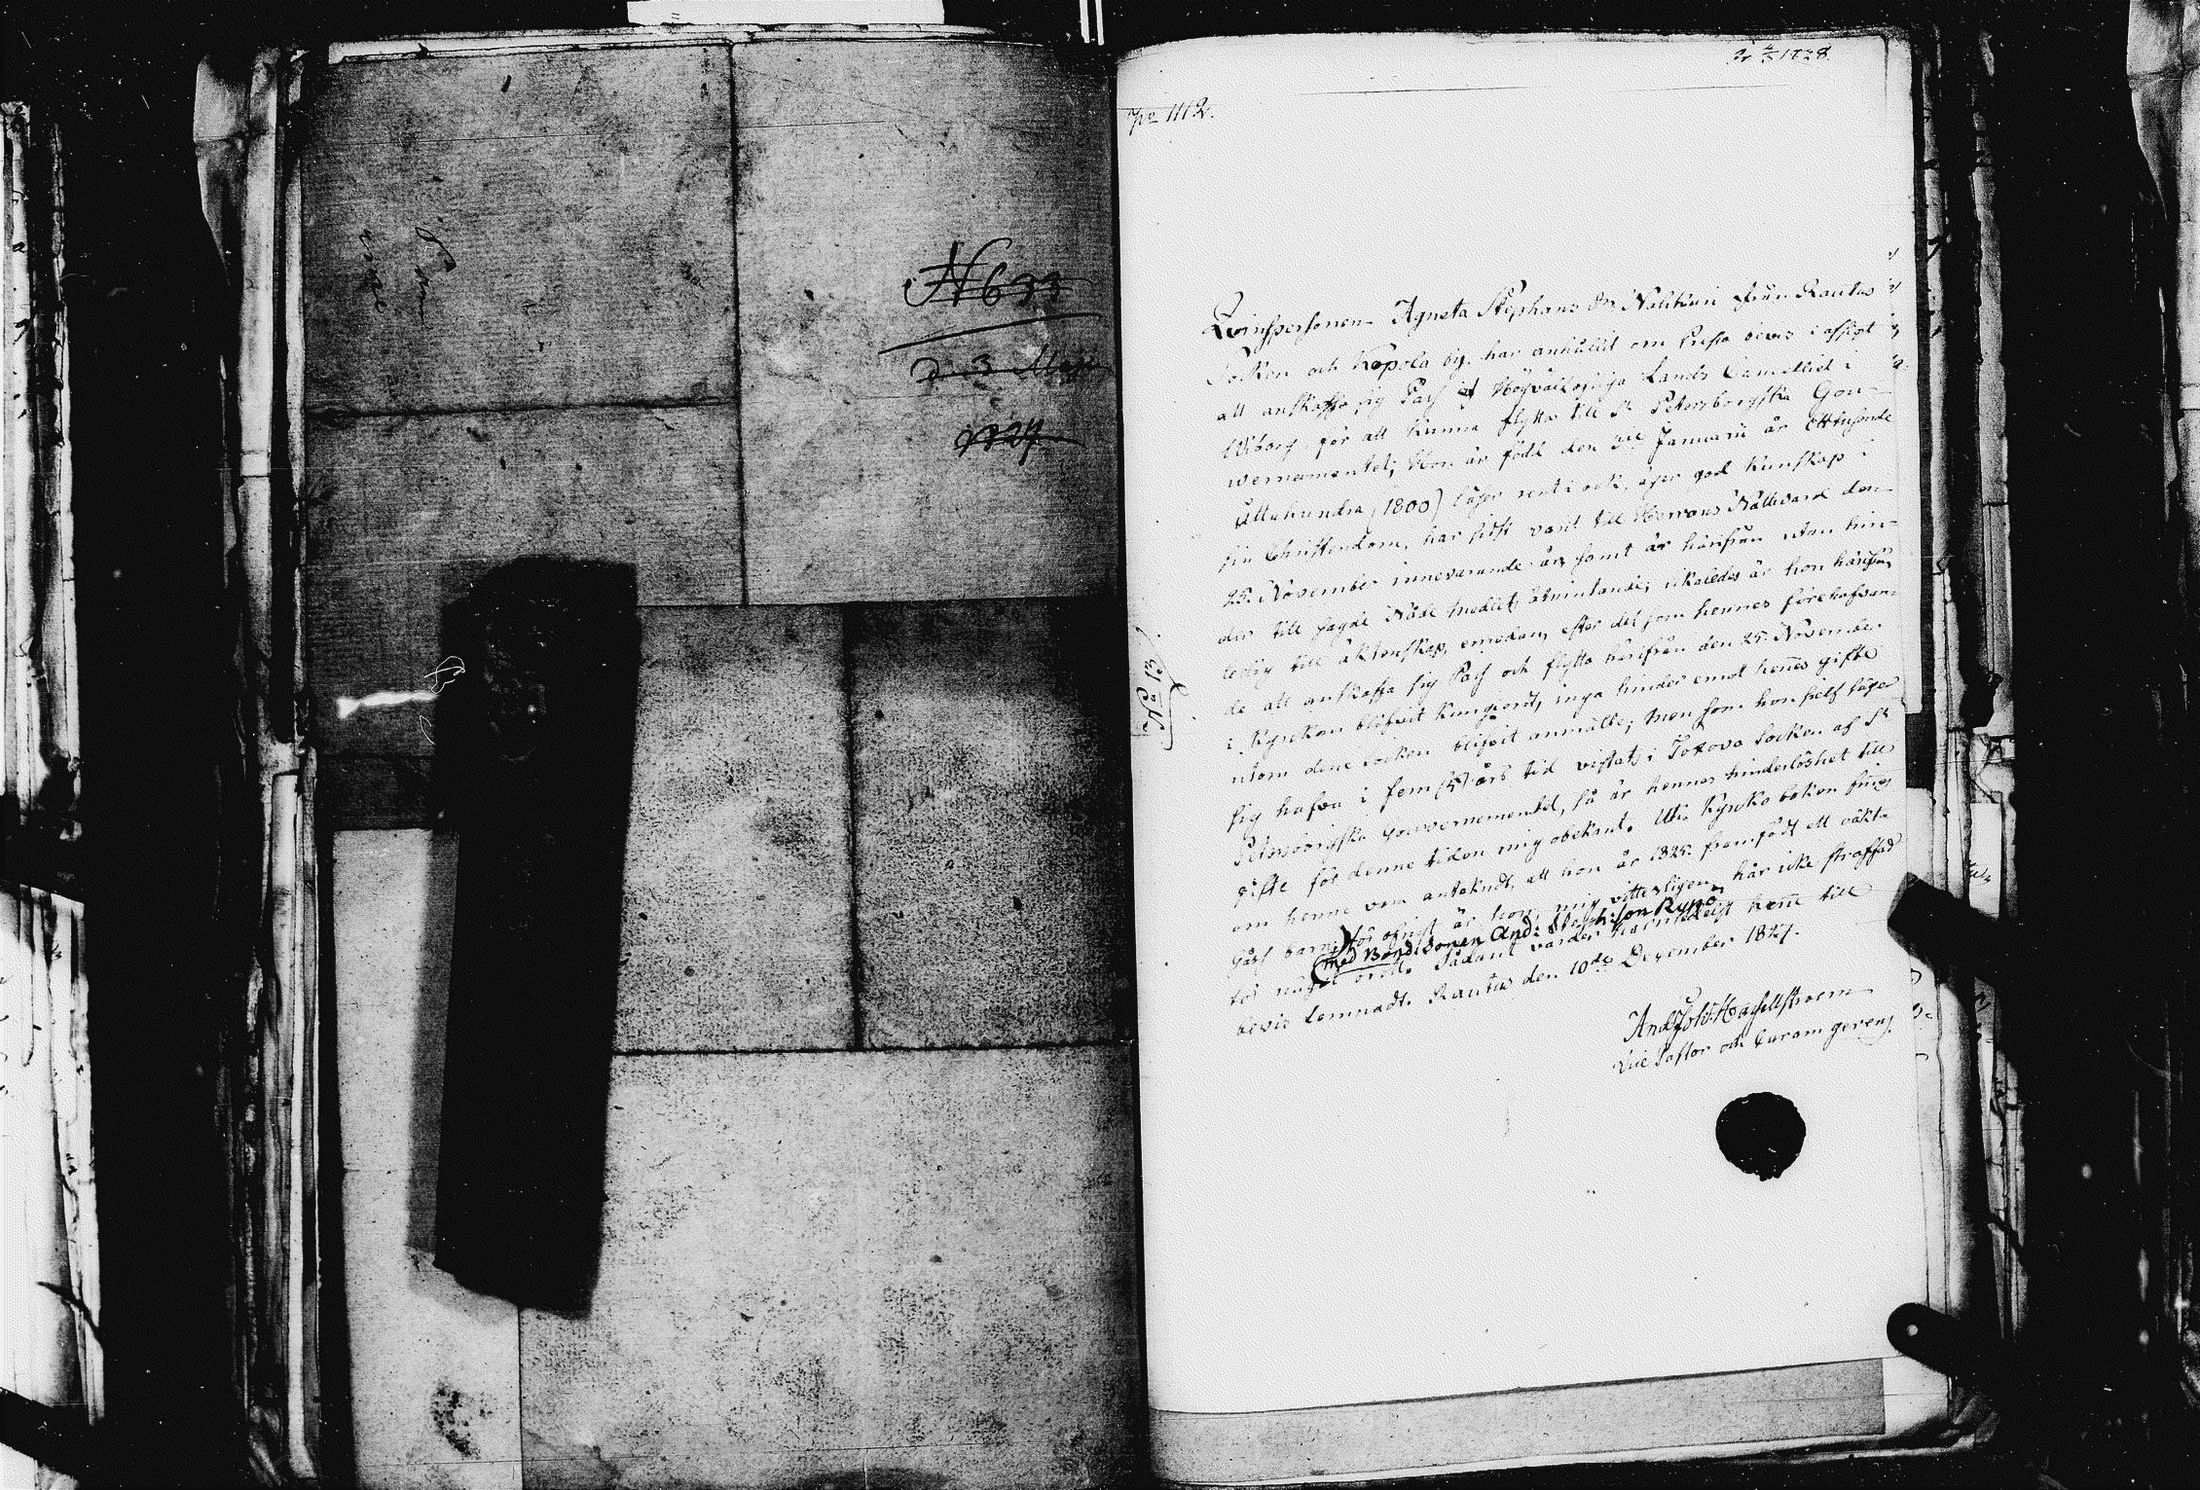 N 633
d. 3 Maji
1827
Pr 2/5 1828
No 1112.
No 13
Qvinspersonen Agneta Stephans Dr Nalitain från Rautus
Socken och Kopola by, har anhållit om Prestabevis i afsigt
att anskaffa sig Pass af Höglofliga Lands Cancelliet i
Wiborg, för att kunna flytta till St Petersborgska Gou-
vernementet; Hon är född den 3de Januarii år Ettusende
Åttahundra (1800) läser rent i bok, äger god kunskap i
sin Christendom, har sidst varit till Herrans Nattvard den
25. November innevarande år, samt är härifrån utan hin-
der till sagde Nåde medels åtniutande; likaledes är hon härifrån
ledig till äktenskap, emedan, efter det som hennes förehafvan-
de att anskaffa sig Pass och flytta härifrån den 25. November
i Kyrckan blifvit kungiordt, inga hinder emot henes gifte
utom dene socken blifvit anmälte; men som hon sielf säger
sig hafva i fem (5) års tid vistats i Toxova Socken af St
Petersborgska Gouvernementet, så är hennes hinderlöshet till
gifte för denne tiden mig obekant. Uti Kyrko boken fines
om henne vara anteknadt, att hon år 1825. framfödt ett oäkta
gåsse barn; för öfrigt är hon, mig vitterligen, här icke straffad
(med Bondesonen And: Stephsson Ryno
för något brott. Sådant varder härmedelst henne till
bevis lemnadt. Rautus den 10de December 1827.
And: Joh: Hagelstroem
Vice Pastor och Curam gerens